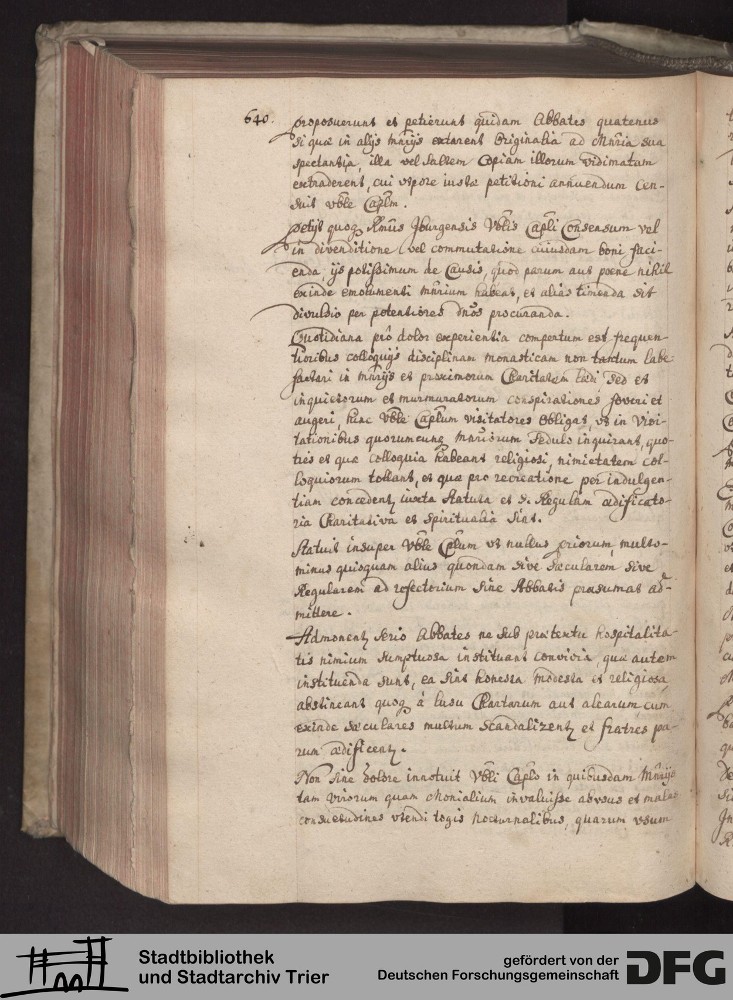 640. proposuerunt et petierunt quidam Abbates quatenus
si quæ in alijs mnrijs extarent Originalia ad Mnria sua
spectantia, illa vel saltem Copiam illorum vidimatam
extraderent, cui utpote iustæ petitioni annuendum cen-
suit vble Caplm.
petijt quoq Rmus Iburgensis Vblis Capli Consensum vel
in divenditione vel commutatione cuiusdam boni faci-
enda, ijs potissimum de Causis, quod parum aut poene nihil
exinde emolumenti mnrium habeat, et alias timenda sit
divulsio per potentiores dnos procuranda.
Quotidiana prô dolor experientia compertum est frequen-
tioribus colloquijs disciplinam monasticam non tantum labe-
factari in mnrijs et proximorum Charitatem lædi sed et
inquietorum et murmuratorum conspirationes foveri et
augeri, hinc Vble Caplum visitatores obligat, ut in Visi-
tationibus quorumcunq mnriorum sedulo inquirant, quo-
ties et quæ colloquia habeant religiosi, nimietatem col-
loquiorum tollant, et quæ pro recreatione per indulgen-
tiam concedent iuxta statuta et S. Regulam ædificato-
ria Charitativa et spiritualia sint.
Statuit insuper Vble Cplum ut nullus priorum, multo-
minus quisquam alius quondam sive sæcularem sive
Regularem ad refectorium sine Abbatis præsumat ad-
mittere.
Admonent serio Abbates ne sub prætextu hospitalita-
tis nimium sumptuosa instituant convivia, quæ autem
instituenda sunt, ea sint honesta modesta et religiosa
abstineant quoq à lusu Chartarum aut alearum cum
exinde sæculares multum scandalizent et fratres pa-
rum ædificent.
Non sine dolore innotuit Vbli Caplo in quibusdam Mnrijs
tam virorum quam Monialium invaluisse abusus et malas
consuetudines utendi togis nocturnalibus, quarum usum
Stadtbibliothek
und Stadtarchiv Trier
gefördert von der
Deutschen Forschungsgemeinschaft
DFG